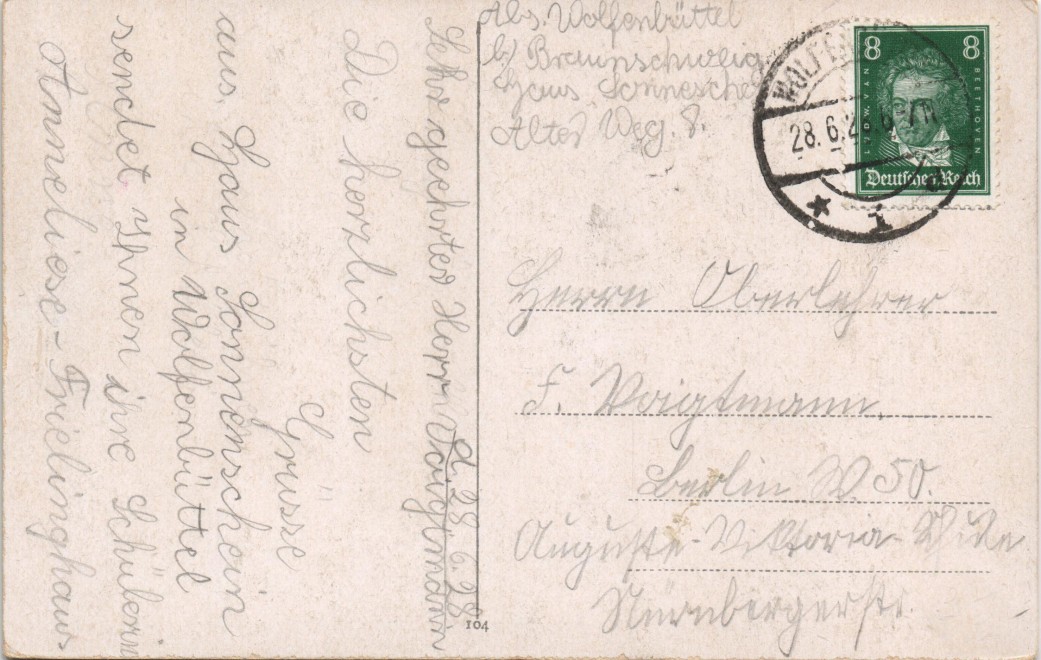 d. 28.6.28.
Sehr geehrter Herr Voigtmann
Die herzlichsten
Grüsse
aus, Haus Sonnenschein
in Wolfenbüttel
sendet Ihnen ihre Schülerin
Anneliese-Frielinghaus
Abs. Wolfenbüttel
b/ Braunschweig
Haus Sonnesche
Alter Weg. 8.
8 8
LUDW. VAN BEETHOVEN
Deutsches Reich
WOLFEN
28.6.2
* 1
Herrn Oberlehrer
F. Voigtmann,
Berlin W. 50.
Auguste-Viktoria-Schule
Nürnbergerstr.
104